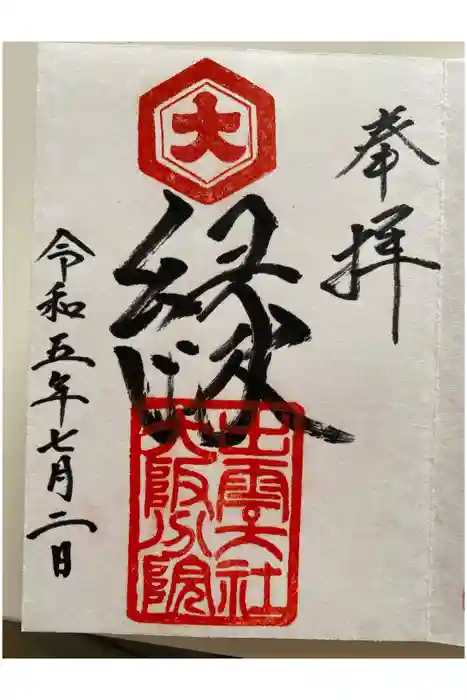 奉拝
大
縁
出雲大社
大阪分院
令和五年七月二日